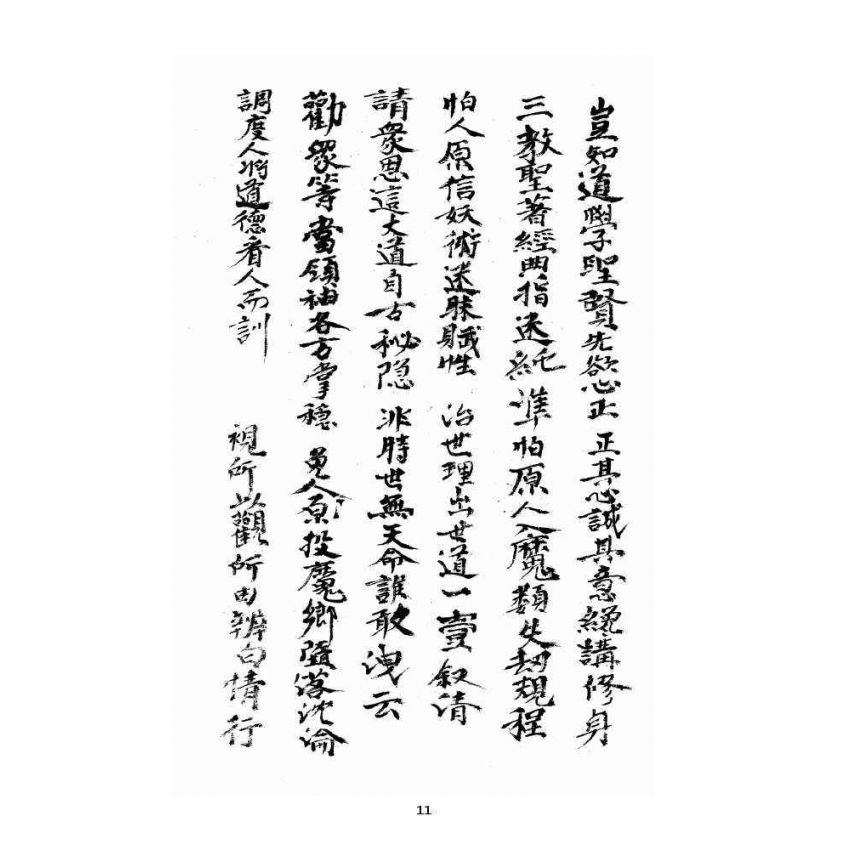 豈知道學聖賢先欲心正 正其心誠其意纔講修身
三教聖著經典指迷純準 怕原人入魔類失劫規程
怕人原信妖術迷昧賦性 治世理出世道一壹叙清
請眾思這大道自古秘隱 非時世無天命誰敢洩云
勸眾等當領袖各方掌穩 免人原投魔鄉墮落沈淪
調度人將道德看人而訓 視所以觀所由辨白情行
11